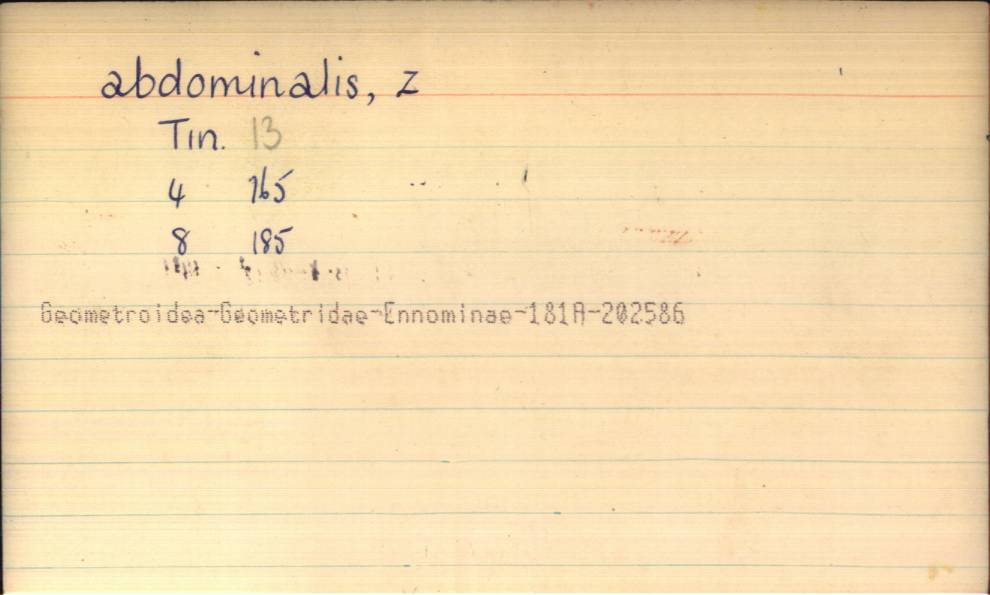 abdominalis, Z
Tin. 13
4 165
8 185
Geometroidea-Geometridae-Ennominae-181A-202586